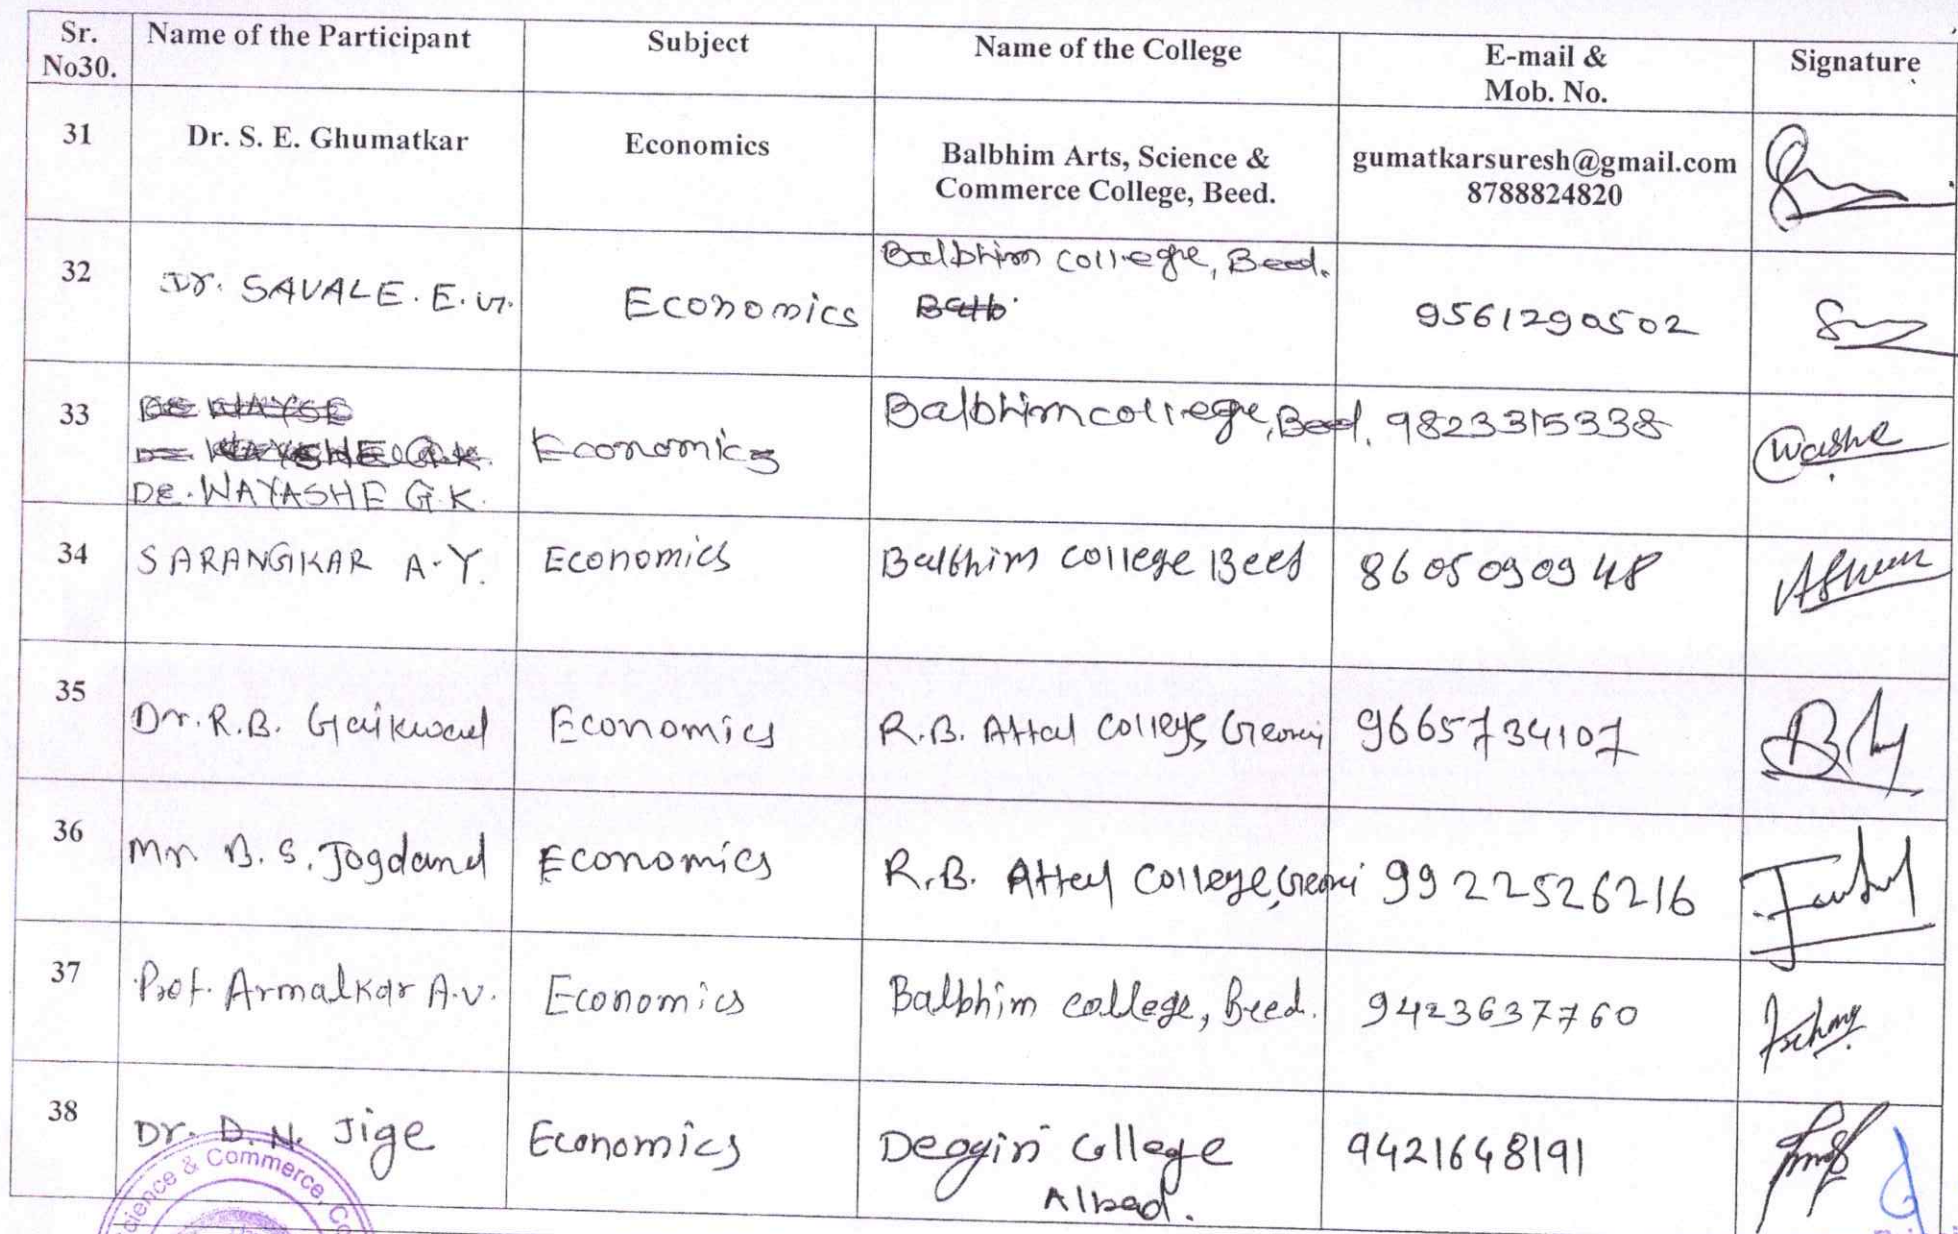 Sr. No30. Name of the Participant Subject Name of the College E-mail & Mob. No. Signature
31 Dr. S. E. Ghumatkar Economics Balbhim Arts, Science & Commerce College, Beed. gumatkarsuresh@gmail.com 8788824820
32 Dr. SAVALE. E. G. Economics Balbhim college, Beed. 9561290502
33 DR. WAYASHE G.K. Economics Balbhim college, Beed. 9823315338
34 SARANGIKAR A.Y. Economics Balbhim college Beed 8605090948
35 Dr. R.B. Gaikwad Economics R.B. Attal College, Georai 9665734107
36 Mr. B. S. Jogdand Economics R.B. Attal College, Georai 9922526216
37 Prof. Armalkar A.V. Economics Balbhim college, Beed. 9423637760
38 Dr. D. N. Jige Economics Deogiri College A'bad. 9421648191
Science & Commerce,